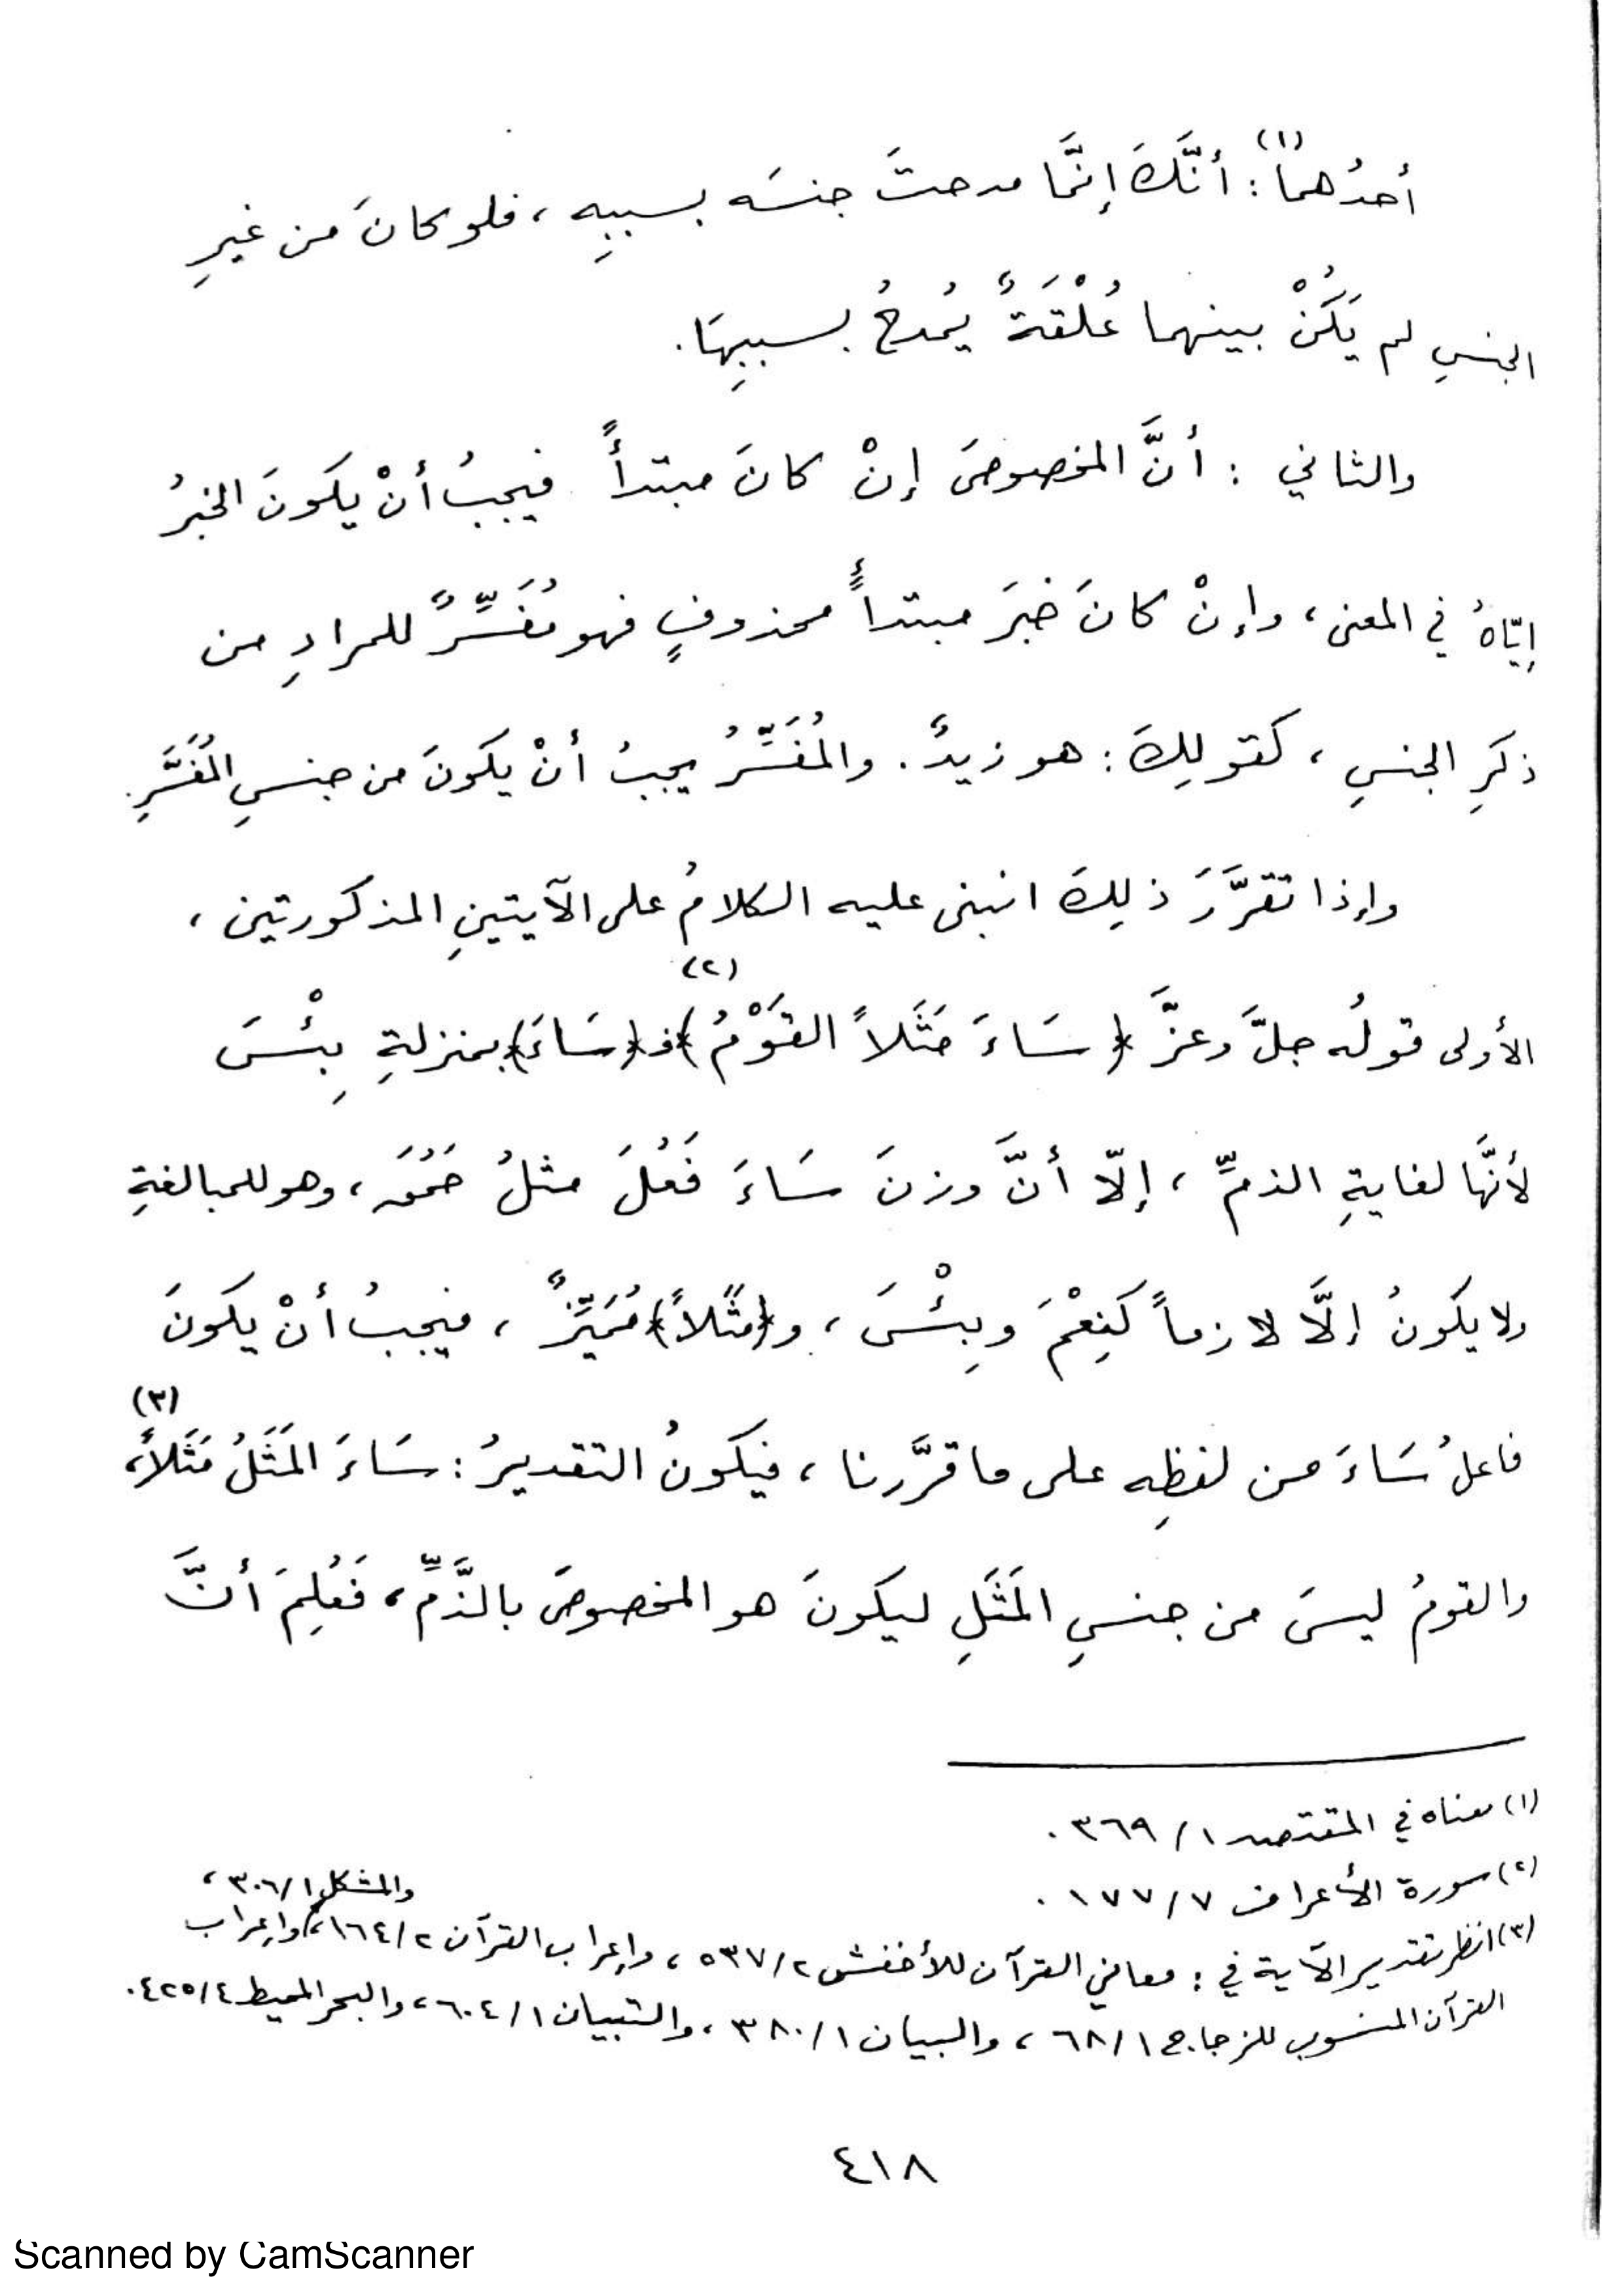 أحدُهما(١): أنَّكَ إنَّما مدحتَ جنسَه بسببِه ، فلو كانَ من غيرِ
الجنسِ لم يَكُنْ بينهما عُلْقَةٌ يُمدحُ بسببِهَا.
والثاني : أنَّ المخصوصَ إنْ كانَ مبتدأً فيجبُ أنْ يكونَ الخبرُ
إيّاهُ في المعنى ، وإنْ كانَ خبرَ مبتدأٍ محذوفٍ فهو مُفَسِّرٌ للمرادِ من
ذكرِ الجنسِ ، كقولِكَ : هو زيدٌ . والمُفَسِّرُ يجبُ أنْ يكونَ من جنسِ المُفَسَّرِ.
وإذا تقرَّرَ ذلِكَ انبنى عليه الكلامُ على الآيتينِ المذكورتين ،
الأولى قولُه جلَّ وعزَّ ﴿ سَاءَ مَثَلاً القَوْمُ ﴾(٢) فـ﴿سَاءَ﴾ بمنزلةِ بِئْسَ
لأنَّها لغايةِ الذمِّ ، إلّا أنَّ وزنَ سَاءَ فَعُلَ مثلُ حَمُقَ ، وهو للمبالغةِ
ولا يكونُ إلَّا لازماً كَنِعْمَ وبِئْسَ ، و﴿مَثَلاً﴾ مُمَيِّزٌ ، فيجبُ أنْ يكونَ
فاعلُ سَاءَ من لفظِه على ما قرَّرنا ، فيكونُ التقديرُ : سَاءَ المَثَلُ مَثَلاً(٣)،
والقومُ ليسَ من جنسِ المَثَلِ ليكونَ هو المخصوصَ بالذَّمِّ ، فَعُلِمَ أنَّ
(١) معناه في المقتصد ١/ ٣٦٩ .
(٢) سورة الأعراف ٧/ ١٧٧ .
(٣) انظر تقدير الآية في : معاني القرآن للأخفش ٢/ ٥٣٧ ، وإعراب القرآن ٢/ ١٦٤ ، والمشكل ١/ ٣٠٦ ، وإعراب
القرآن المنسوب للزجاج ١/ ٦٨ ، والبيان ١/ ٣٨٠ ، والتبيان ١/ ٦٠٤ ، والبحر المحيط ٤/ ٤٢٥ .
٤١٨
Scanned by CamScanner